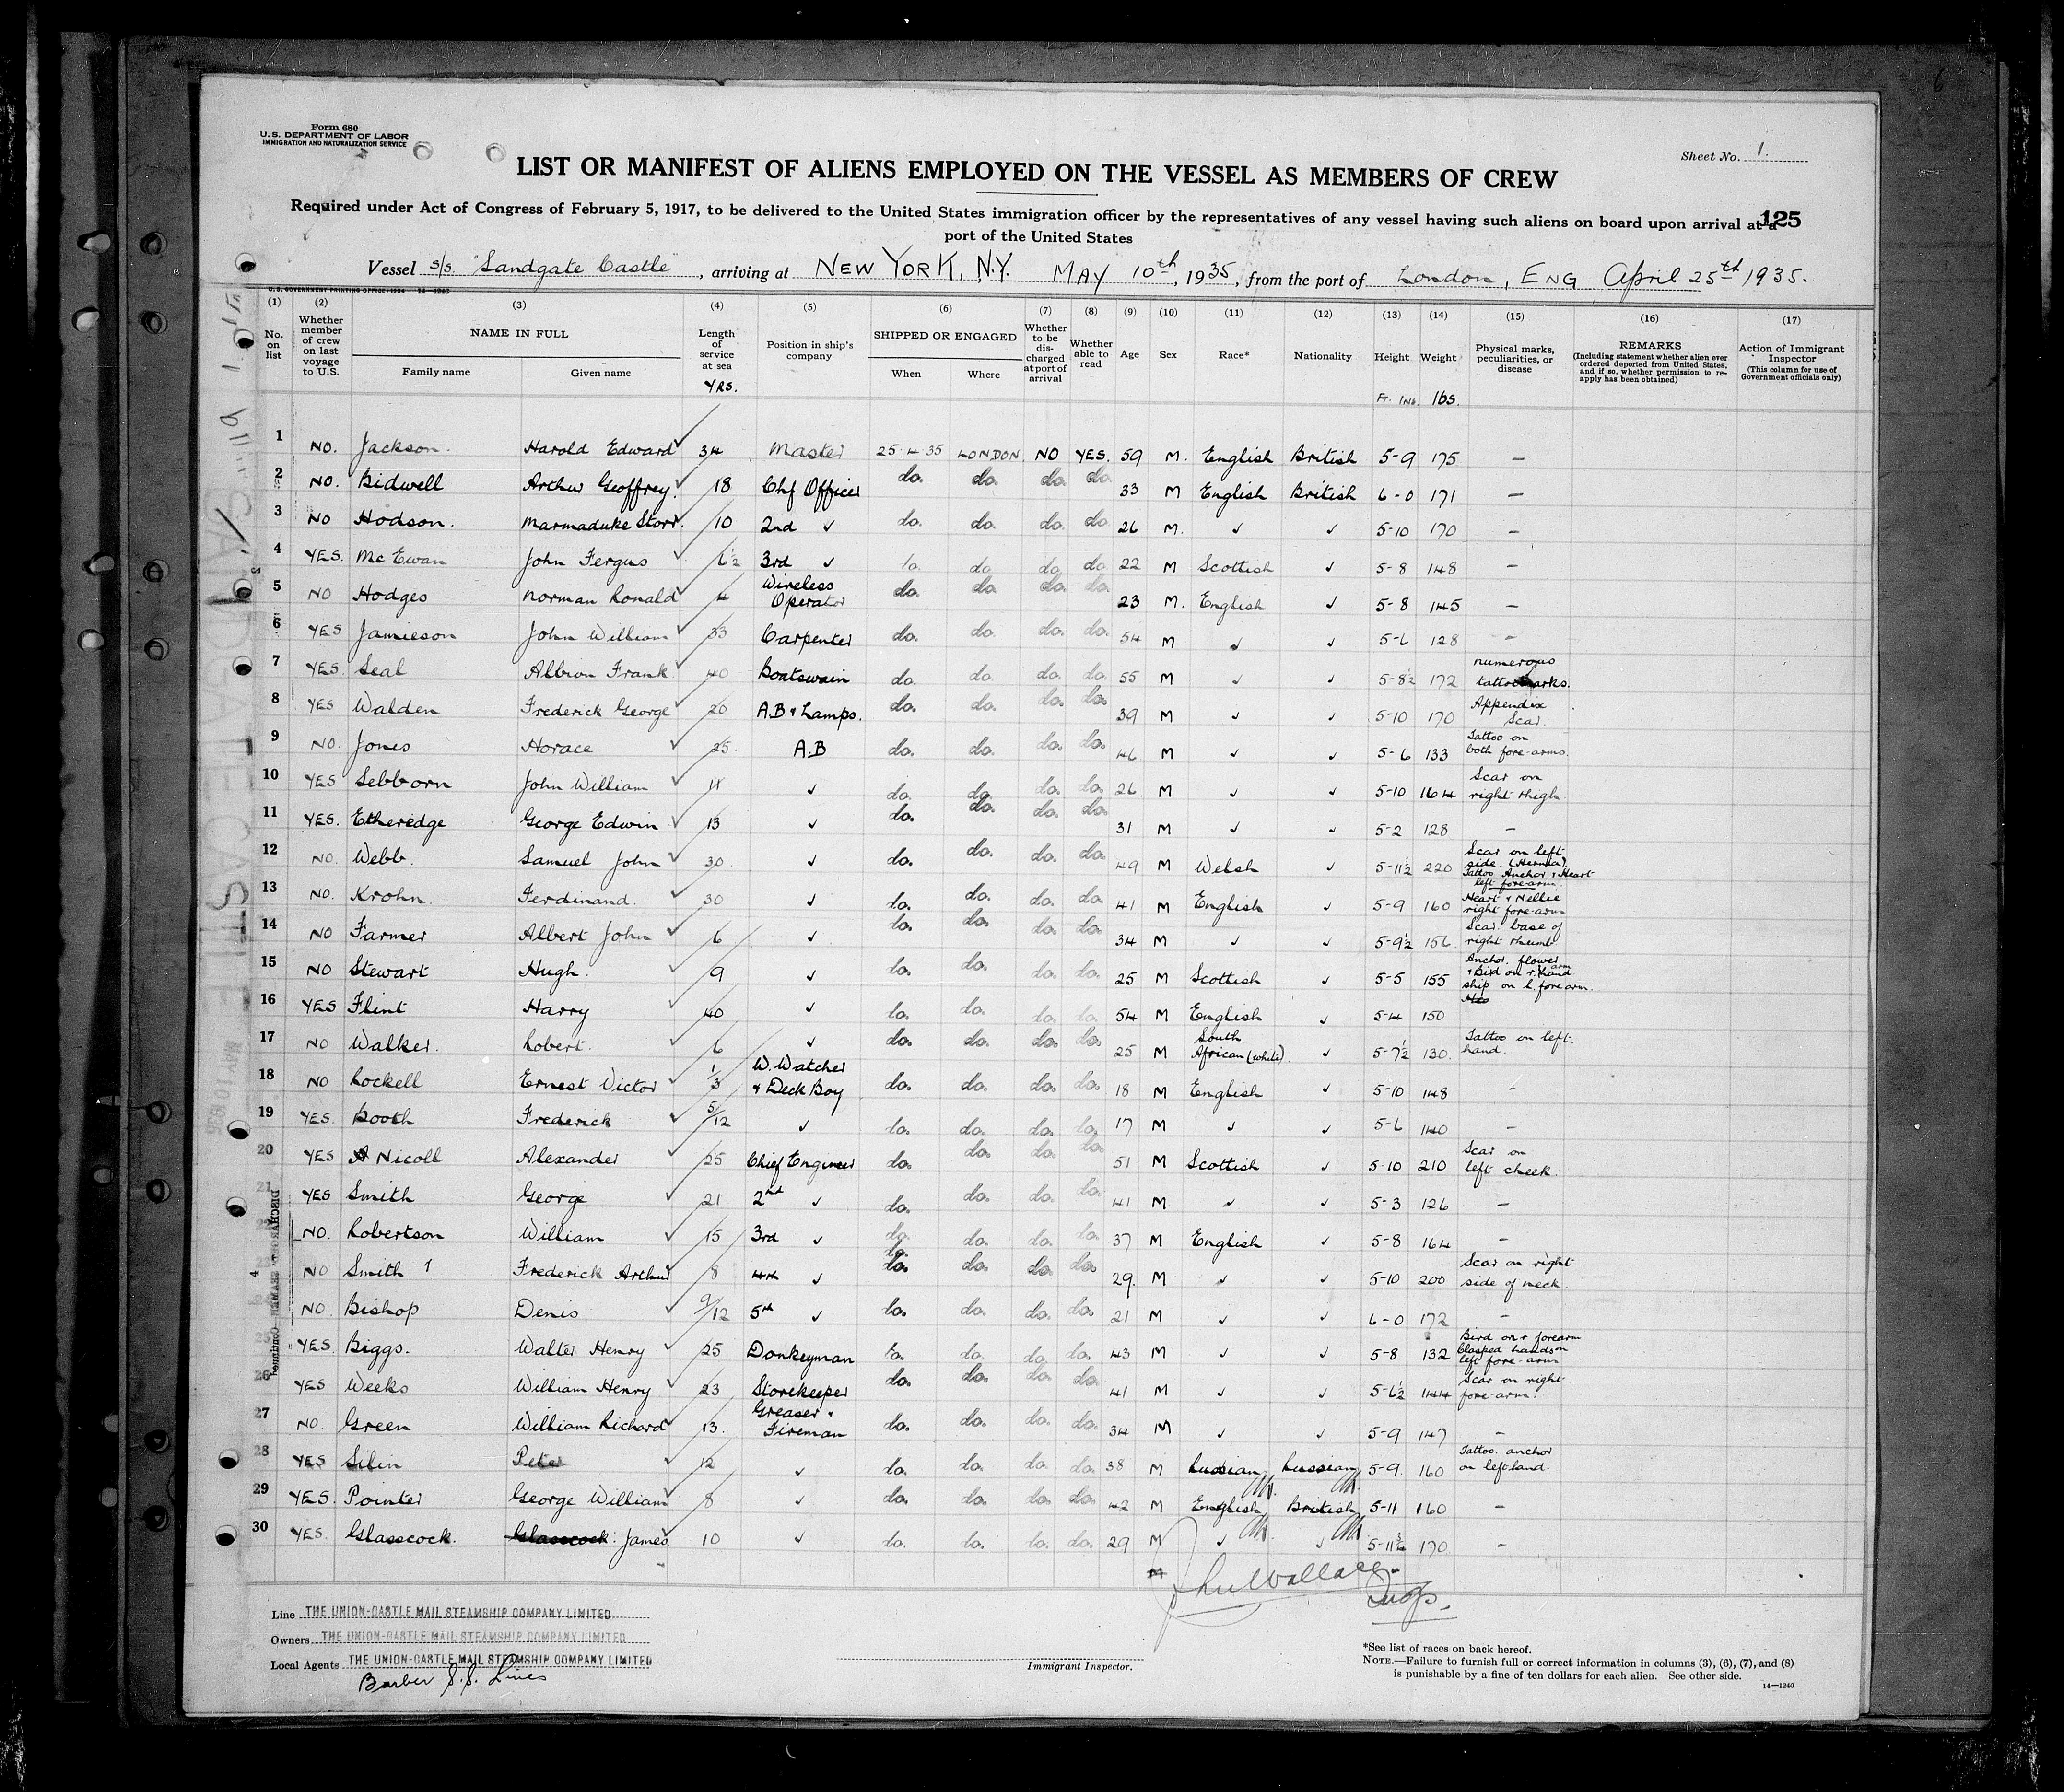 6
Form 680
U.S. DEPARTMENT OF LABOR
IMMIGRATION AND NATURALIZATION SERVICE
Sheet No. 1.
LIST OR MANIFEST OF ALIENS EMPLOYED ON THE VESSEL AS MEMBERS OF CREW
Required under Act of Congress of February 5, 1917, to be delivered to the United States immigration officer by the representatives of any vessel having such aliens on board upon arrival at a
port of the United States
125
Vessel s/s. "Sandgate Castle", arriving at NEW YORK, N.Y. MAY 10th, 1935, from the port of London, ENG April 25th 1935.
U.S. GOVERNMENT PRINTING OFFICE: 1934 14-1240
(1) (2) (3) (4) (5) (6) (7) (8) (9) (10) (11) (12) (13) (14) (15) (16) (17)
No. on list | Whether member of crew on last voyage to U.S. | NAME IN FULL Family name Given name | Length of service at sea YRS. | Position in ship's company | SHIPPED OR ENGAGED When Where | Whether to be discharged at port of arrival | Whether able to read | Age | Sex | Race* | Nationality | Height Ft. Ins. | Weight lbs. | Physical marks, peculiarities, or disease | REMARKS (Including statement whether alien ever ordered deported from United States, and if so, whether permission to reapply has been obtained) | Action of Immigrant Inspector (This column for use of Government officials only)
1 NO. Jackson. Harold Edward 34 Master 25·4·35 LONDON. NO YES. 59 M. English British 5-9 175 —
2 NO. Bidwell Arthur Geoffrey. 18 Chf Officer do. do. do. do. 33 M English British 6-0 171 —
3 NO Hodson. Marmaduke Storr. 10 2nd ✓ do. do. do. do 26 M. ✓ ✓ 5-10 170 —
4 YES. McEwan John Fergus 6½ 3rd ✓ do. do do. do 22 M Scottish ✓ 5-8 148 —
5 NO Hodges Norman Ronald 4 Wireless Operator do. do. do. do. 23 M. English ✓ 5-8 145 —
6 YES Jamieson John William 33 Carpenter do. do. do. do. 54 M ✓ ✓ 5-6 128 —
7 YES. Seal Albion Frank 40 Boatswain do. do. do. do. 55 M ✓ ✓ 5-8½ 172 numerous tattoo marks.
8 YES Walden Frederick George 20 A.B & Lamps. do. do. do. do. 39 M ✓ ✓ 5-10 170 Appendix Scar.
9 NO. Jones Horace 25. A.B do. do. do. do. 46 M ✓ ✓ 5-6 133 Tattoo on both fore-arms.
10 YES Sebborn John William 11 ✓ do. do. do. do. 26 M ✓ ✓ 5-10 164 Scar on right thigh
11 YES. Etheredge George Edwin 13 ✓ do. do. do. do. 31 M ✓ ✓ 5-2 128 —
12 NO. Webb. Samuel John 30. ✓ do. do. do. do. 49 M Welsh ✓ 5-11½ 220 Scar on left side. (Hernia). Tattoo Anchor & Heart left fore-arm.
13 NO. Krohn. Ferdinand. 30 ✓ do. do. do. do. 41 M English ✓ 5-9 160 Heart & Nellie right fore-arm
14 NO Farmer Albert John 6 ✓ do. do. do. do. 34 M ✓ ✓ 5-9½ 156 Scar base of right thumb
15 NO Stewart Hugh. 9 ✓ do. do. do. do. 25 M Scottish ✓ 5-5 155 Anchor, flower & Bird on r. hand arm ship on l. forearm.
16 YES Flint Harry 40 ✓ do. do. do. do. 54 M English ✓ 5-4 150
17 NO Walker. Robert. 6 ✓ do. do. do. do. 25 M South African (white). ✓ 5-7½ 130. Tattoo on left hand.
18 NO Rockell Ernest Victor 1/3 W. Watcher & Deck Boy do. do. do. do. 18 M English ✓ 5-10 148 -
19 YES. Booth Frederick 5/12 ✓ do. do. do. do. 17 M ✓ ✓ 5-6 140 —
20 YES Nicoll Alexander 25 Chief Engineer do. do. do. do. 51 M Scottish ✓ 5-10 210 Scar on left cheek.
21 YES Smith George 21 2nd ✓ do. do. do. do. 41 M ✓ ✓ 5-3 126 —
22 NO. Robertson William 15 3rd ✓ do. do. do. do. 37 M English ✓ 5-8 164 -
23 NO Smith 1 Frederick Arthur 8 4th ✓ do. do. do. do. 29. M ✓ ✓ 5-10 200 Scar on right side of neck.
24 NO. Bishop Denis 9/12 5th ✓ do. do. do. do. 21 M ✓ ✓ 6-0 172 —
25 YES. Biggs. Walter Henry 25 Donkeyman do. do. do. do. 43 M ✓ ✓ 5-8 132 Bird on r forearm Clasped hands on left fore-arm
26 YES Weeks William Henry 23 Storekeeper do. do. do. do. 41 M ✓ ✓ 5-6½ 144 Scar on right fore-arm.
27 NO. Green William Richard 13. Greaser & Fireman do. do. do. do. 34 M ✓ ✓ 5-9 147 —
28 YES Silin Peter 12 ✓ do. do. do. do. 38 M Russian Russian 5-9. 160 Tattoo. anchor on left hand.
29 YES. Pointer George William 8 ✓ do. do. do. do. 42 M English British 5-11 160 -
30 YES. Glasscock. Glasscock. James. 10 ✓ do. do. do. do. 29 M ✓ ✓ 5-11¾ 170. -
M
John Wallace
Line THE UNION-CASTLE MAIL STEAMSHIP COMPANY LIMITED
Owners THE UNION-CASTLE MAIL STEAMSHIP COMPANY LIMITED
Local Agents THE UNION-CASTLE MAIL STEAMSHIP COMPANY LIMITED
Barber S.S. Lines
Immigrant Inspector.
*See list of races on back hereof.
NOTE.—Failure to furnish full or correct information in columns (3), (6), (7), and (8)
is punishable by a fine of ten dollars for each alien. See other side.
14—1240